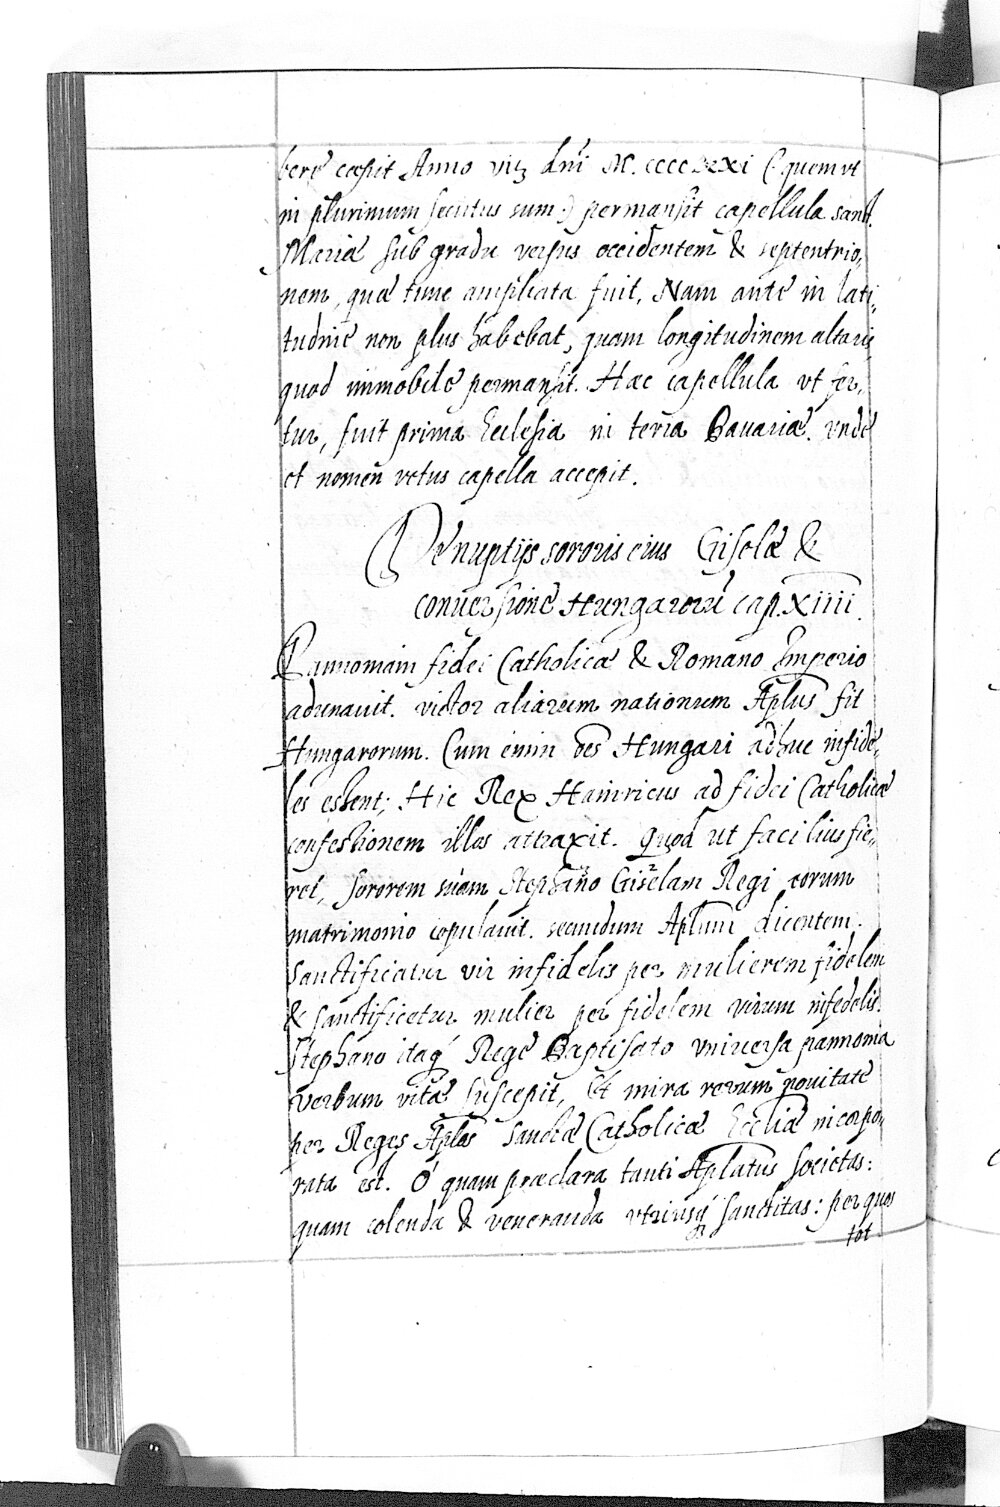 bere cœpit Anno viz dni M. ccccxxxi (quem vt
in plurimum secutus sum) permansit capellula sanct.
Mariæ sub gradu versus occidentem & septentrio,,
nem, quæ tunc ampliata fuit. Nam ante in lati,,
tudine non plus habebat, quam longitudinem altaris
quod immobile permansit. Hæc capellula vt fer,,
tur, fuit prima Ecclesia in terra Bauariæ. vnde
et nomen vetus capella accepit.
De nuptijs sororis eius Giselæ &
conuersione Hungarorū cap. XIIII.
Pannoniam fidei Catholicæ & Romano Imperio
adunauit. victor aliarum nationum Aplus fit
Hungarorum. Cum enim oēs Hungari adhuc infide,,
les essent; Hic Rex Hainricus ad fidei Catholicæ
confessionem illos attraxit. Quod ut facilius fie,,
ret, sororem suam Stephano Giselam Regi eorum
matrimonio copulauit. secundum Aplum dicentem.
Sanctificatur vir infidelis per mulierem fidelem
& sanctificetur mulier per fidelem virum infedelis.
Stephano itaq́ Rege Baptisato vniuersa pannonia
verbum vitæ suscepit, Et mira rerum nouitate
per Reges Aplos sanctæ Catholicæ Eccliæ incorpo,,
rata est. O quam præclara tanti Aplatus societas:
quam colenda & veneranda vtriusq́ sanctitas: per quos
tot